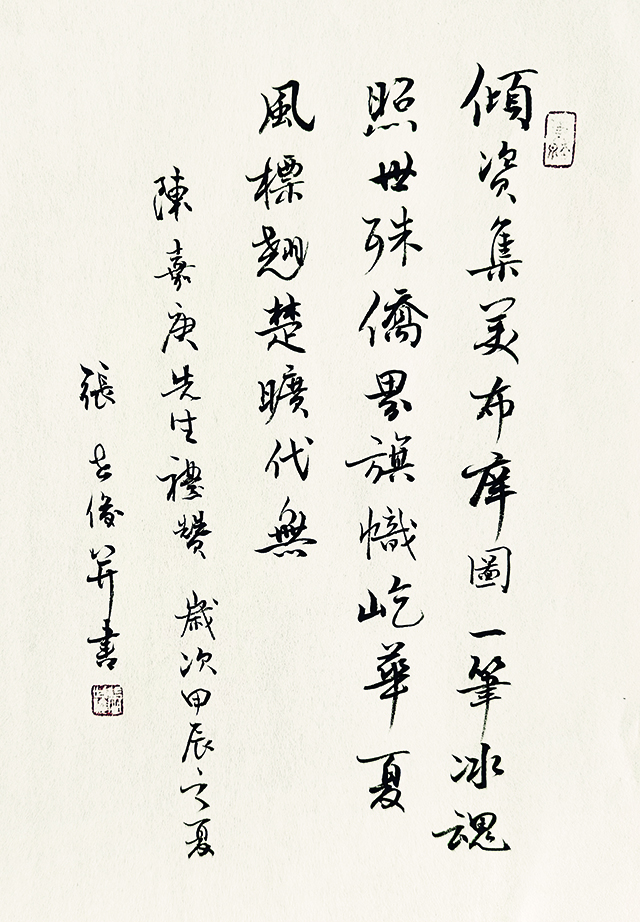 傾資集美布庠圖一筆冰魂
照世殊僑界旗幟屹華夏
風標翹楚曠代無
陳嘉庚先生禮贊 歲次甲辰之夏
張 俊并書